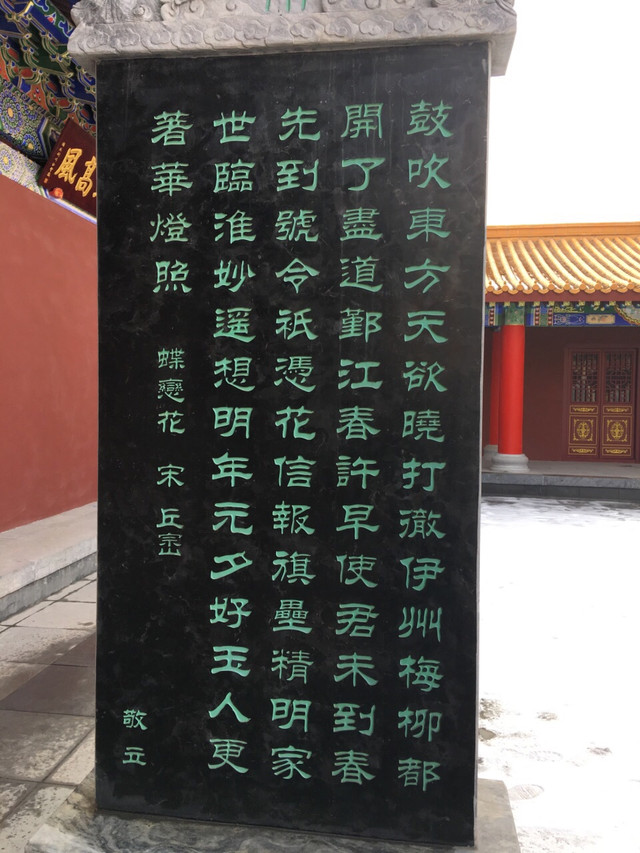 鼓吹東方天欲曉打徹伊州梅柳都
開了盡道鄞江春許早使君未到春
先到號令祇憑花信報旗壘精明家
世臨淮妙遥想明年元夕好玉人更
著華燈照
蝶戀花 宋 丘崈
敬立
高風